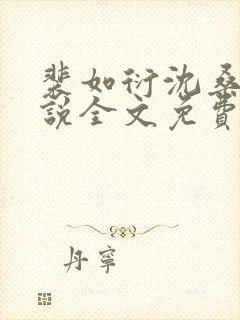 裴如衍沈桑
說全文免費
丹寧